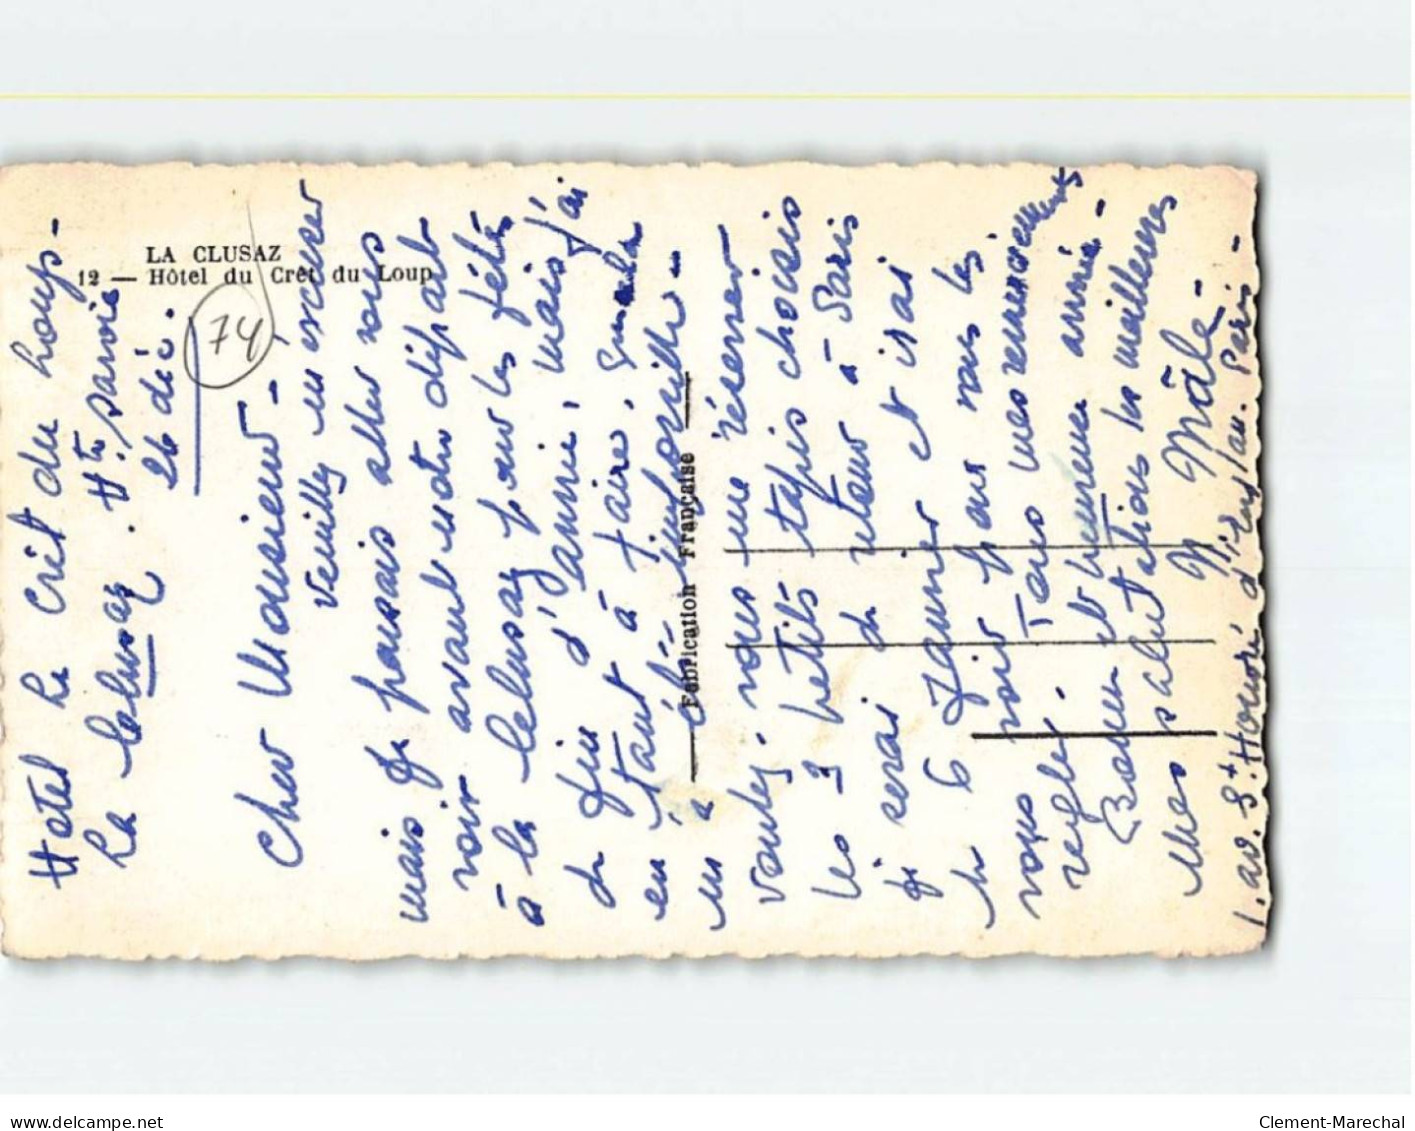 LA CLUSAZ
12 — Hôtel du Crêt du Loup
74
Fabrication Française
Hotel Le Crêt du Loup-
La Clusaz. Hte Savoie
26 déc.
Cher Monsieur-
Veuillez m'excuser
mais je pensais aller vous
voir avant notre départ
à la Clusaz pour les fêtes
de fin d'année, mais j'ai
eu tant à faire,
à été impossible-
voulez-vous me réserver
les 2 petits tapis choisis
je serai de retour à Paris
le 6 Janvier et irai
vous voir pour vous les
regler. Tous mes remerciements
Bonne et heureuse année-
Mes salutations les meilleures
Y Mâle-
1. av. St. Honoré d'Eylau. Paris-
delcampe.net
Clement-Marechal